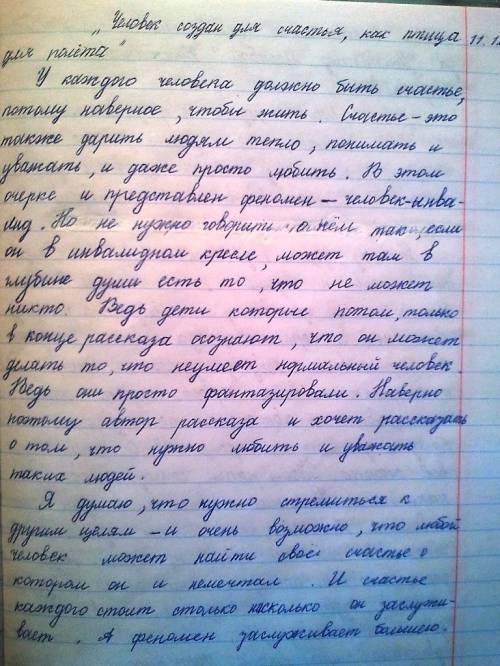 „Человек создан для счастья, как птица 11.1
для полёта"
У каждого человека должно быть счастье,
потому наверное, чтобы жить. Счастье - это
также дарить людям тепло, понимать и
уважать, и даже просто любить. В этом
очерке и представлен феномен - человек-инва-
лид. Но не нужно говорить о нём так, если
он в инвалидном кресле, может там в
глубине души есть то, что не может
никто. Ведь дети которые потом, только
в конце рассказа осознают, что он может
делать то, что неумеет нормальный человек
Ведь они просто фантазировали. Наверно
поэтому автор рассказа и хочет рассказать
о том, что нужно любить и уважать
таких людей.
Я думаю, что нужно стремиться к
другим целям - и очень возможно, что любой
человек может найти своё счастье о
котором он и немечтал. И счастье
каждого стоит столько насколько он заслужи-
вает. А феномен заслуживает большего.